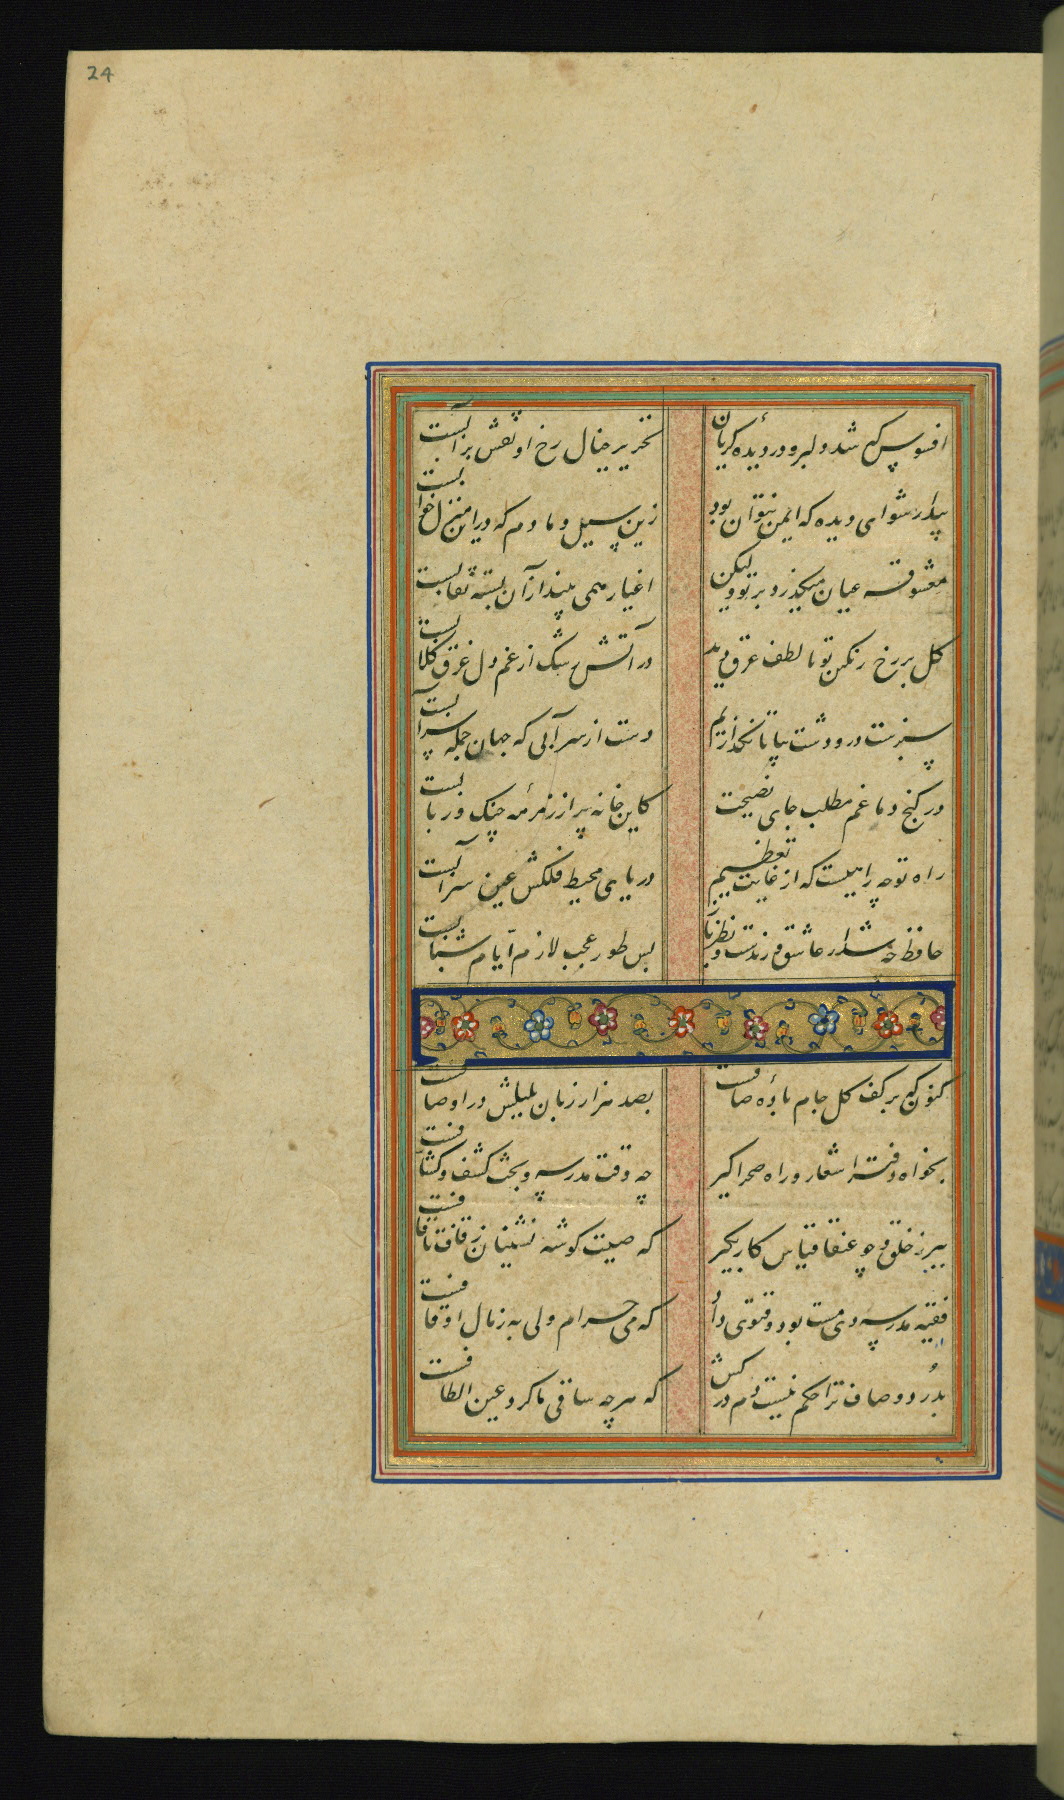 24
افسوس که شد دلبر و در دیدهٔ گریان
تحریر خیال رخ او نقش بر آبست
بیدار شو ای دیده که ایمن نتوان بود
زین سیل دمادم که در این منزل خوابست
معشوقه عیان میگذرد بر تو ولیکن
اغیار همی بیند از آن بسته نقابست
گل بر رخ رنگین تو تا لطف عرق دید
در آتش رشک از غم دل غرق گلابست
سبزست در و دشت بیا تا نگذاریم
دست از سر آبی که جهان جمله سرابست
در کنج دماغم مطلب جای نصیحت
کاین خانه پر از زمزمهٔ چنگ و ربابست
راه تو چه راهیست که از غایت تعظیم
دریای محیط فلکش عین سرآبست
حافظ چه شد ار عاشق و رندست و نظرباز
بس طور عجب لازم ایام شبابست
کنون که بر کف گل جام بادهٔ صافست
بصد هزار زبان بلبلش در اوصافست
بخواه دفتر اشعار و راه صحرا گیر
چه وقت مدرسه و بحث کشف و کشافست
ببر ز خلق و چو عنقا قیاس کار بگیر
که صیت گوشه نشینان ز قاف تا قافست
فقیه مدرسه دی مست بود و فتوی داد
که می حرام ولی به ز مال اوقافست
بدرد و صاف ترا حکم نیست دم درکش
که هر چه ساقی ما کرد عین الطافست